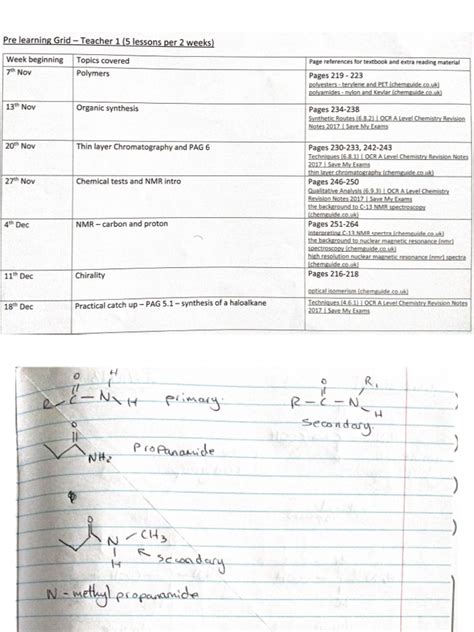 Pre learning Grid – Teacher 1 (5 lessons per 2 weeks)
Week beginning Topics covered Page references for textbook and extra reading material
7th Nov Polymers Pages 219 - 223
polyesters - terylene and PET (chemguide.co.uk)
polyamides - nylon and Kevlar (chemguide.co.uk)
13th Nov Organic synthesis Pages 234-238
Synthetic Routes (6.8.2) | OCR A Level Chemistry Revision
Notes 2017 | Save My Exams
20th Nov Thin layer Chromatography and PAG 6 Pages 230-233, 242-243
Techniques (6.8.1) | OCR A Level Chemistry Revision Notes
2017 | Save My Exams
thin layer chromatography (chemguide.co.uk)
27th Nov Chemical tests and NMR intro Pages 246-250
Qualitative Analysis (6.9.3) | OCR A Level Chemistry
Revision Notes 2017 | Save My Exams
the background to C-13 NMR spectroscopy
(chemguide.co.uk)
4th Dec NMR – carbon and proton Pages 251-264
interpreting C-13 NMR spectra (chemguide.co.uk)
the background to nuclear magnetic resonance (nmr)
spectroscopy (chemguide.co.uk)
high resolution nuclear magnetic resonance (nmr) spectra
(chemguide.co.uk)
11th Dec Chirality Pages 216-218
optical isomerism (chemguide.co.uk)
18th Dec Practical catch up – PAG 5.1 – synthesis of a haloalkane Techniques (4.6.1) | OCR A Level Chemistry Revision Notes
2017 | Save My Exams
O H O R1
R-C-N H primary. R-C-N H
secondary.
O
NH2 Propanamide
O
N CH3
H secondary
N-methyl propanamide